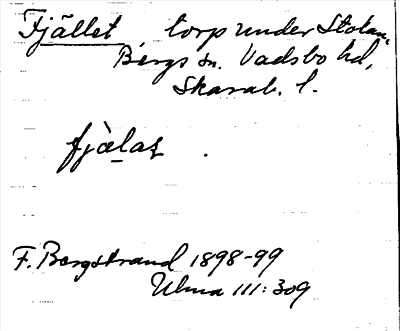 Fjället, torp under Stolan,
Bergs sn. Vadsbo hd,
Skarab. l.
fjàlaʒ .
F. Bergstrand 1898-99
Ulma 111:309